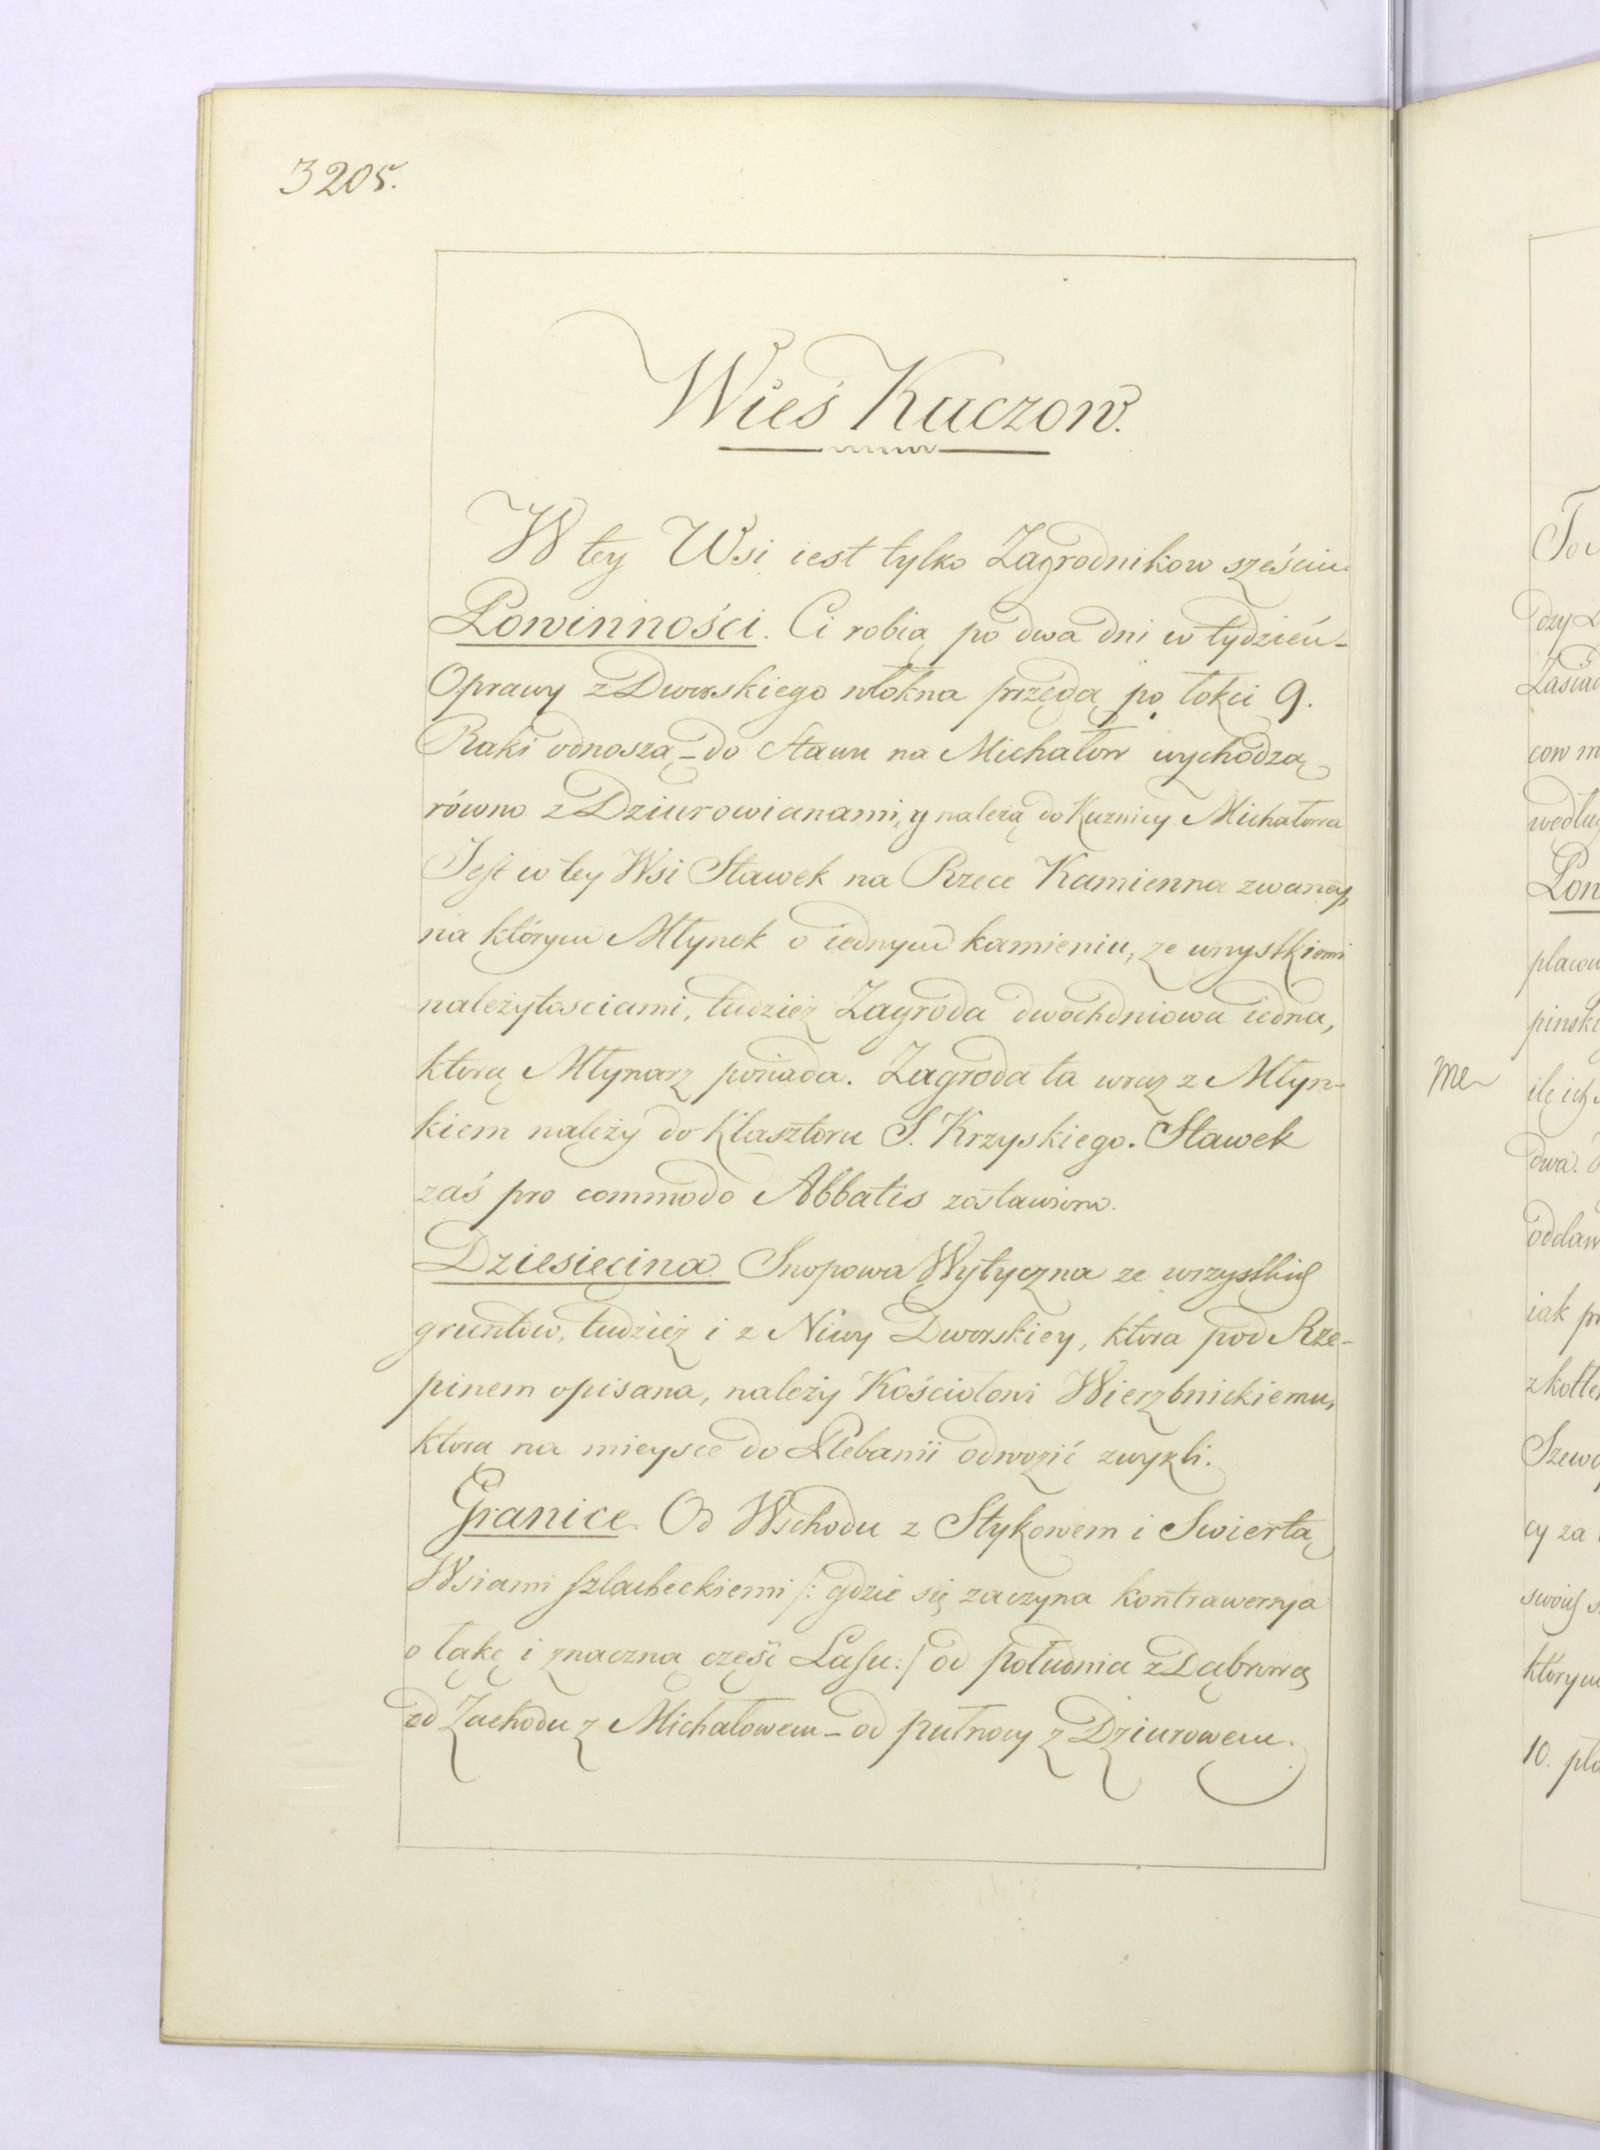 3205.
Wieś Kuczow.
W tey Wsi iest tylko Zagrodnikow sześciu
Powinności. Ci robią po dwa dni w tydzień -
Oprawy z Dworskiego włokna przędą po łokci 9.
Raki odnoszą - do Stawu na Michałow wychodzą
równo z Dziurowianami, y należą do Kuznicy Michałowa
Jest w tey Wsi Stawek na Rzece Kamienna zwaney,
na którym Młynek o iednym kamieniu, ze wszystkiemi
należytosciami, tudzież Zagroda dwochdniowa iedna,
ktorą Młynarz posiada. Zagroda ta wraz z Młyn-
kiem należy do Klasztoru S. Krzyskiego. Stawek
zaś pro commodo Abbatis zostawiono.
Dziesiecina. Snopowa Wytyczna ze wszystkich
gruntow, tudzież i z Niwy Dworskiey, ktora pod Rze-
pinem opisana, należy Kościołowi Wierzbnickiemu,
ktorą na mieysce do Plebanii odwozić zwykli.
Granice. Od Wschodu z Stykowem i Swiertą
Wsiami szlacheckiemi /: gdzie się zaczyna kontrawersya
o łąkę i znaczną część Lasu :/ od południa z Dąbrową
od Zachodu z Michałowem - od pułnocy z Dziurowem.
me